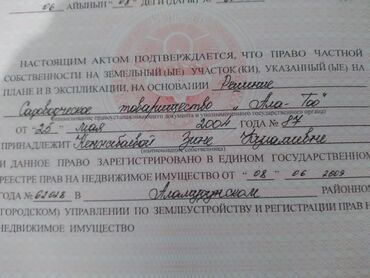 " 06 " АЙЫНЫН " 08 "
НАСТОЯЩИМ АКТОМ ПОДТВЕРЖДАЕТСЯ, ЧТО ПРАВО ЧАСТНОЙ
СОБСТВЕННОСТИ НА ЗЕМЕЛЬНЫЙ(ЫЕ) УЧАСТОК(КИ), УКАЗАННЫЙ(ЫЕ) НА
ПЛАНЕ И В ЭКСПЛИКАЦИИ, НА ОСНОВАНИИ Решение
Садоводческое товарищество „Ала-Тоо"
(наименование правоустанавливающего документа и уполномоченного государственного органа)
ОТ " 25 " мая 2004 ГОДА № 87
ПРИНАДЛЕЖИТ
(наименование собственника)
И ДАННОЕ ПРАВО ЗАРЕГИСТРИРОВАНО В ЕДИНОМ ГОСУДАРСТВЕННОМ
РЕЕСТРЕ ПРАВ НА НЕДВИЖИМОЕ ИМУЩЕСТВО ОТ " 08 " 06 2009
ГОДА № 62048 В Аламудунском РАЙОННОМ
(ГОРОДСКОМ) УПРАВЛЕНИИ ПО ЗЕМЛЕУСТРОЙСТВУ И РЕГИСТРАЦИИ ПРАВ НА
НЕДВИЖИМОЕ ИМУЩЕСТВО